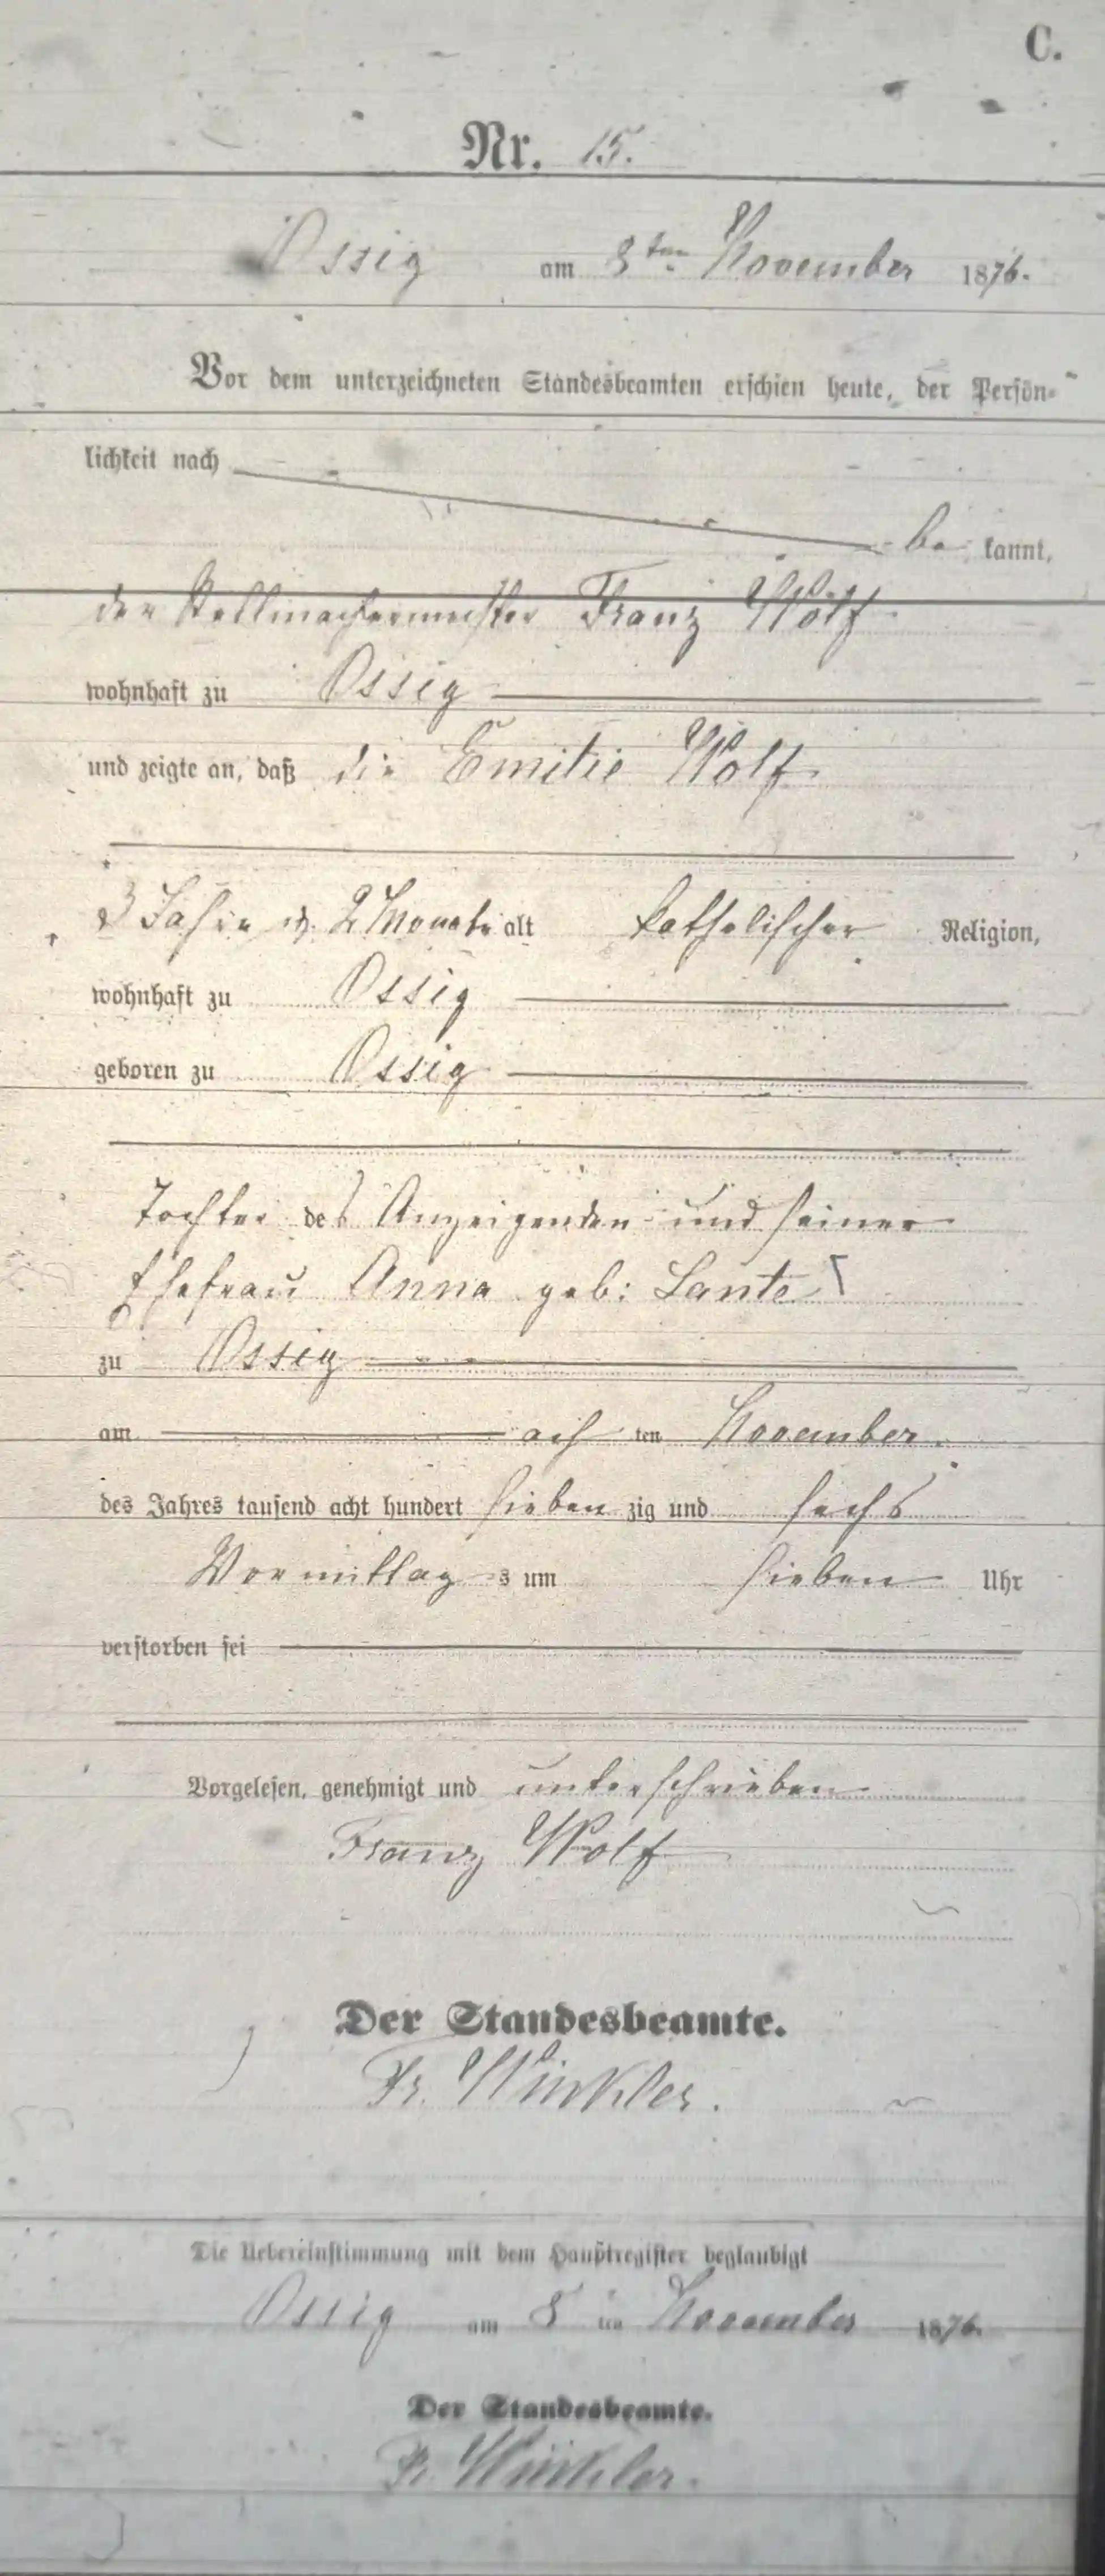 C.
Nr. 15.
Ossig am 8ten November 1876.
Vor dem unterzeichneten Standesbeamten erschien heute, der Persön-
lichkeit nach
be kannt,
der Stellmachermeister Franz Wolf
wohnhaft zu Ossig
und zeigte an, daß die Emilie Wolf
3 Jahre u. 2 Monate alt katholischer Religion,
wohnhaft zu Ossig
geboren zu Ossig
Tochter des Anzeigenden und seiner
Ehefrau Anna geb: Lante
zu Ossig
am ach ten November.
des Jahres tausend acht hundert sieben zig und sechs
Vormittag s um sieben Uhr
verstorben sei
Vorgelesen, genehmigt und unterschrieben
Franz Wolf
Der Standesbeamte.
Fr. Winkler.
Die Uebereinstimmung mit dem Hauptregister beglaubigt
Ossig am 8 ten November 1876.
Der Standesbeamte.
Fr. Winkler.